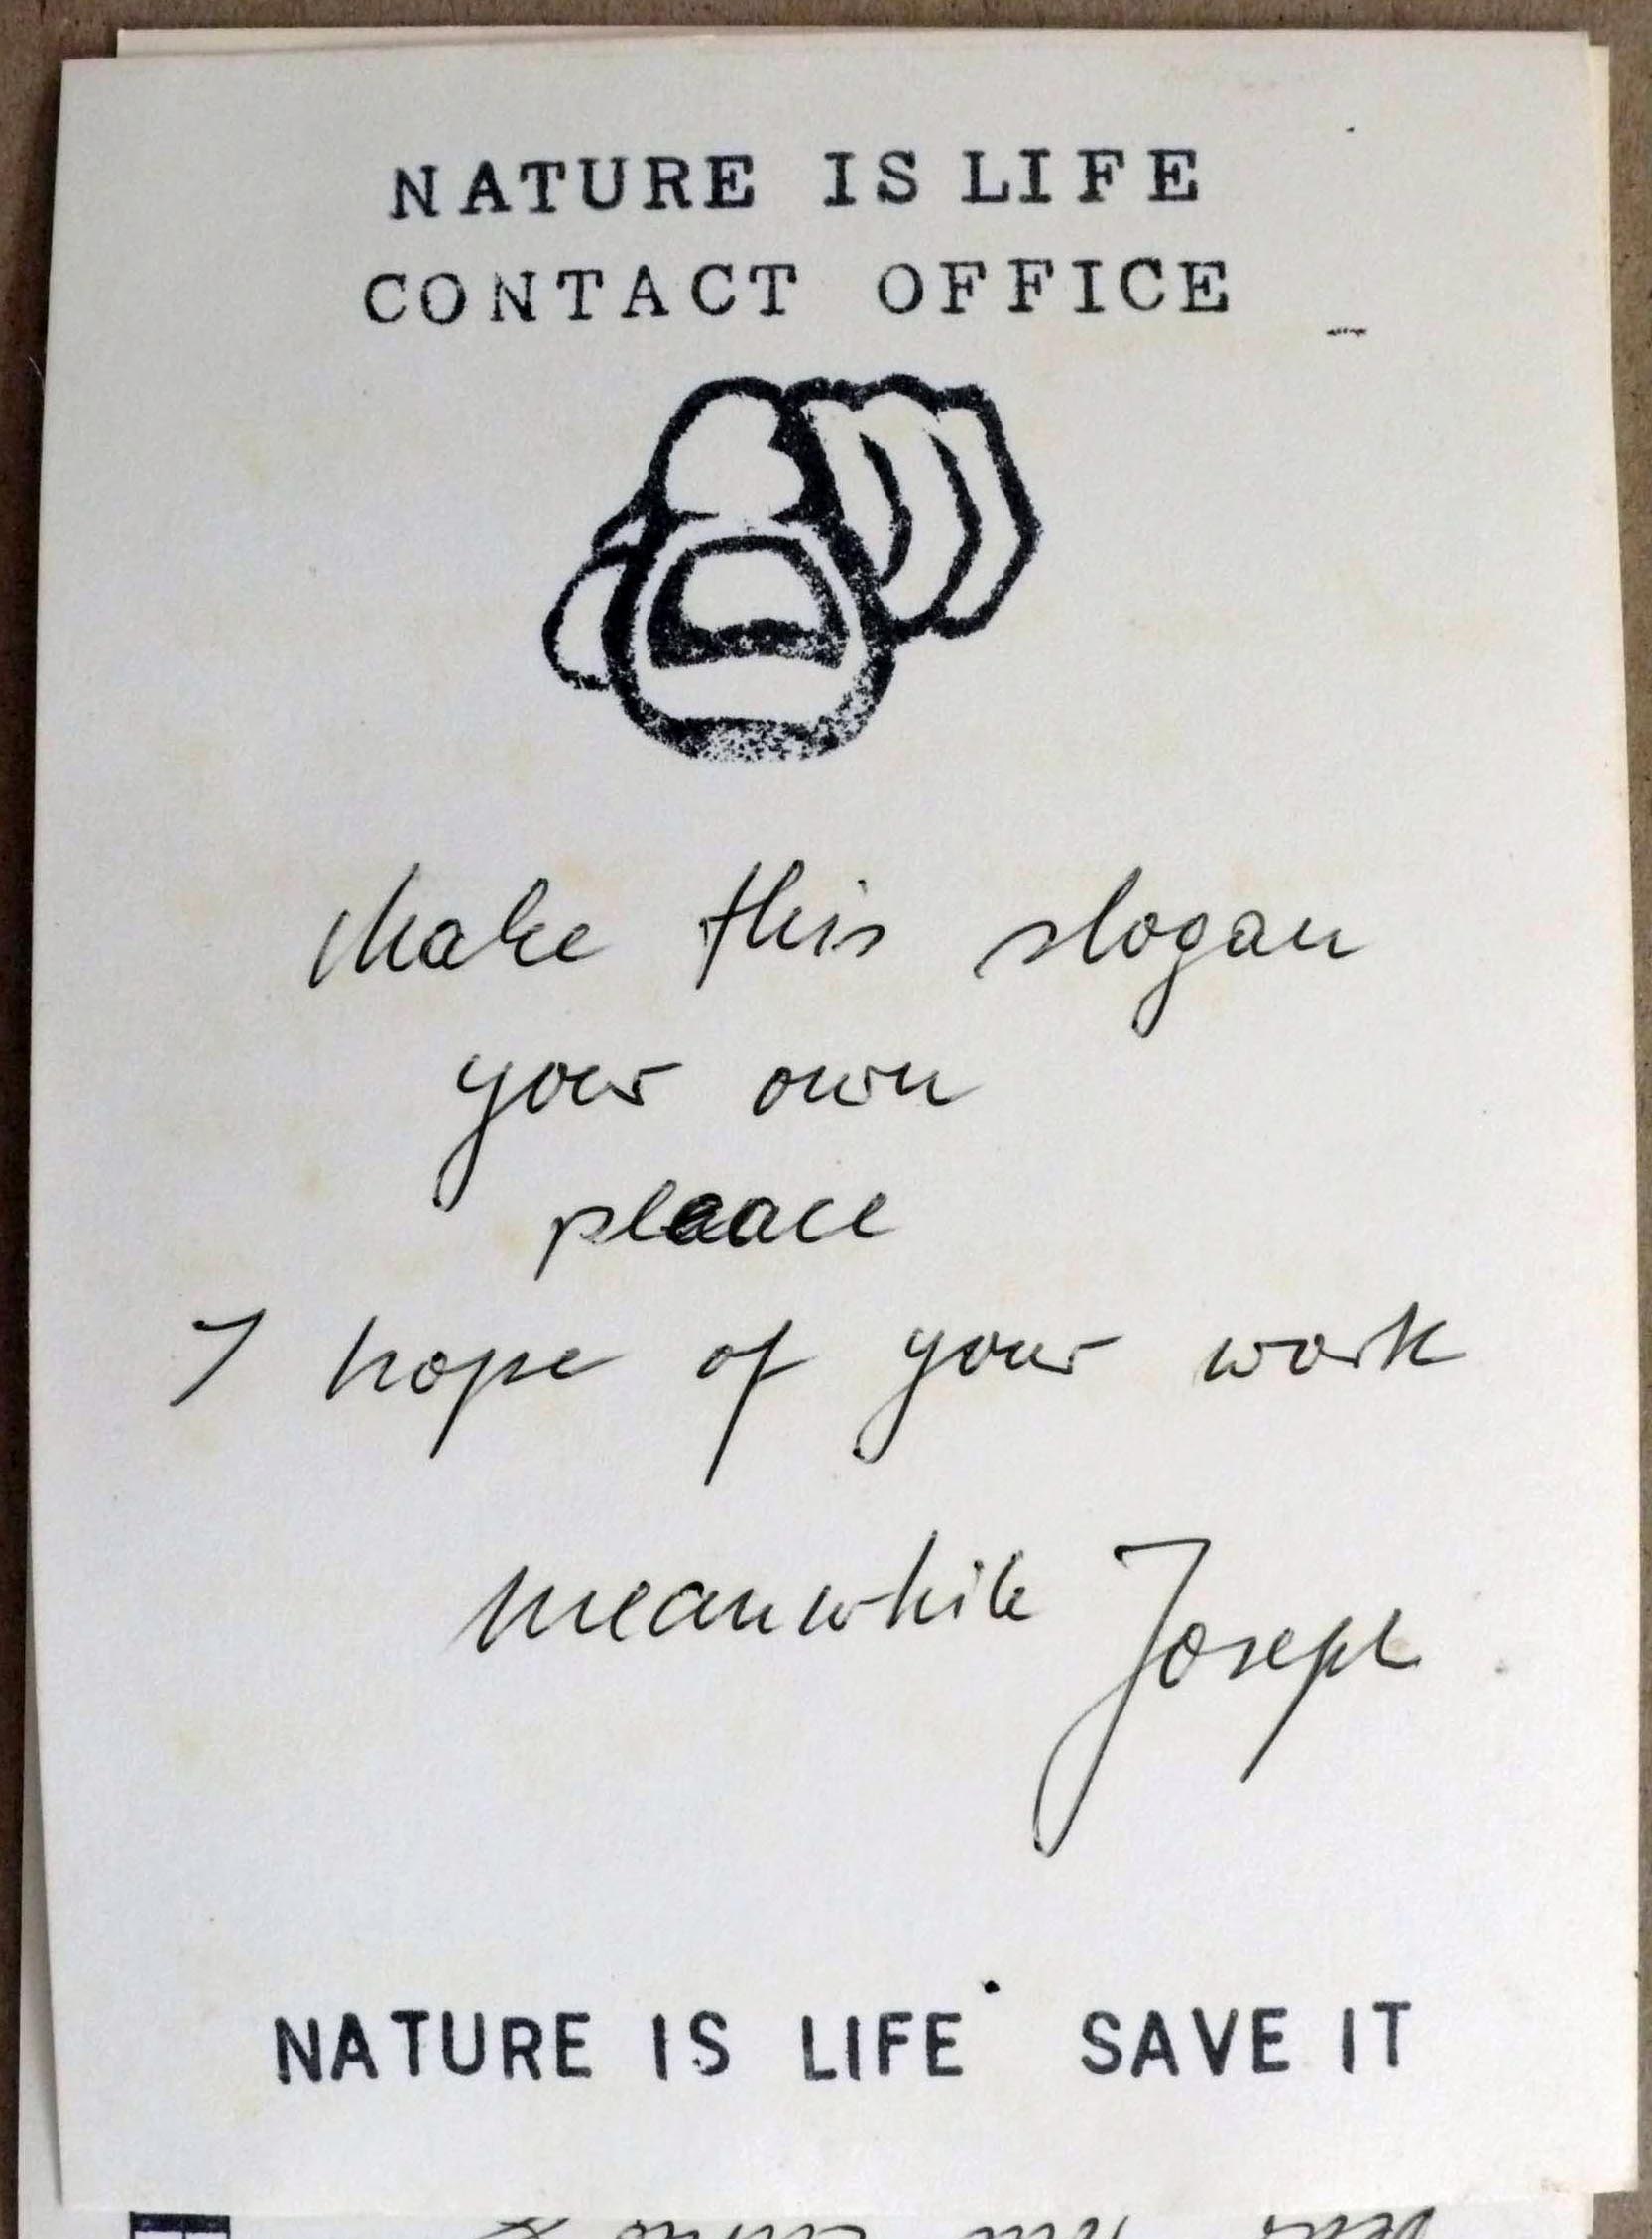 NATURE IS LIFE
CONTACT OFFICE
Make this slogan
your own
pleaace
I hope of your work
meanwhile Joseph
NATURE IS LIFE SAVE IT